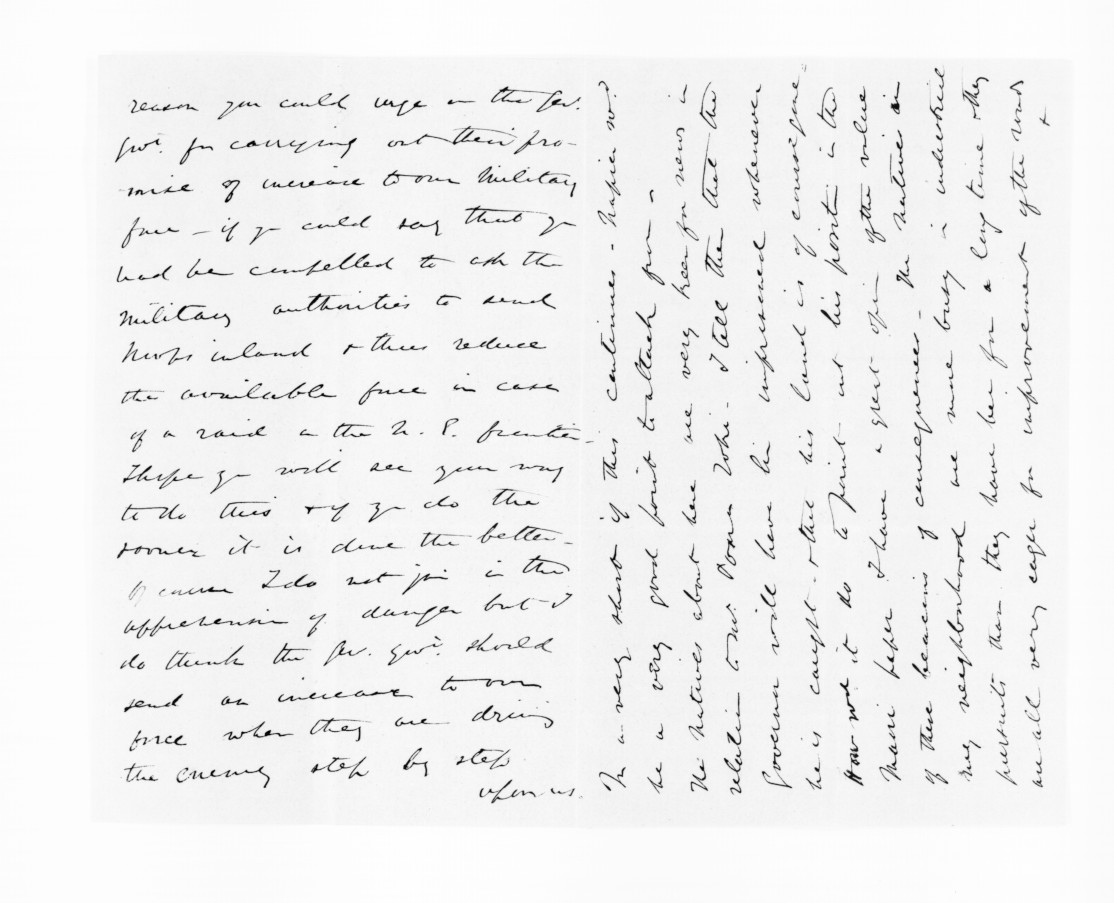 reason you could urge on the Gen.
Govt. for carrying out their pro-
-mise of increase to our Military
force - if you could say that you
had been compelled to ask the
Military authorities to send
troops inland & thus reduce
the available force in case
of a raid on the N. P. frontier -
I hope you will see your way
to do this & if you do the
sooner it is done the better -
Of course I do not join in the
apprehension of danger but I
do think the Gen. Govt. should
send an increase to our
force when they are driving
the enemy step by step
upon us.
In a very short if this continues - Napier wd.
be a very good point to attack from -
The natives about here are very keen for news in
relation to Mr. Poor Whi - I tell them that the
Governor will have him imprisoned whenever
he is caught - & that his land is of course gone -
How wd it do to point out his position in the
Maori paper I have a great opin of the value
of these beacons of consequences - The natives in
my neighborhood are more busy in industrial
pursuits than they have been for a long time & they
are all very eager for improvement of the runs
&